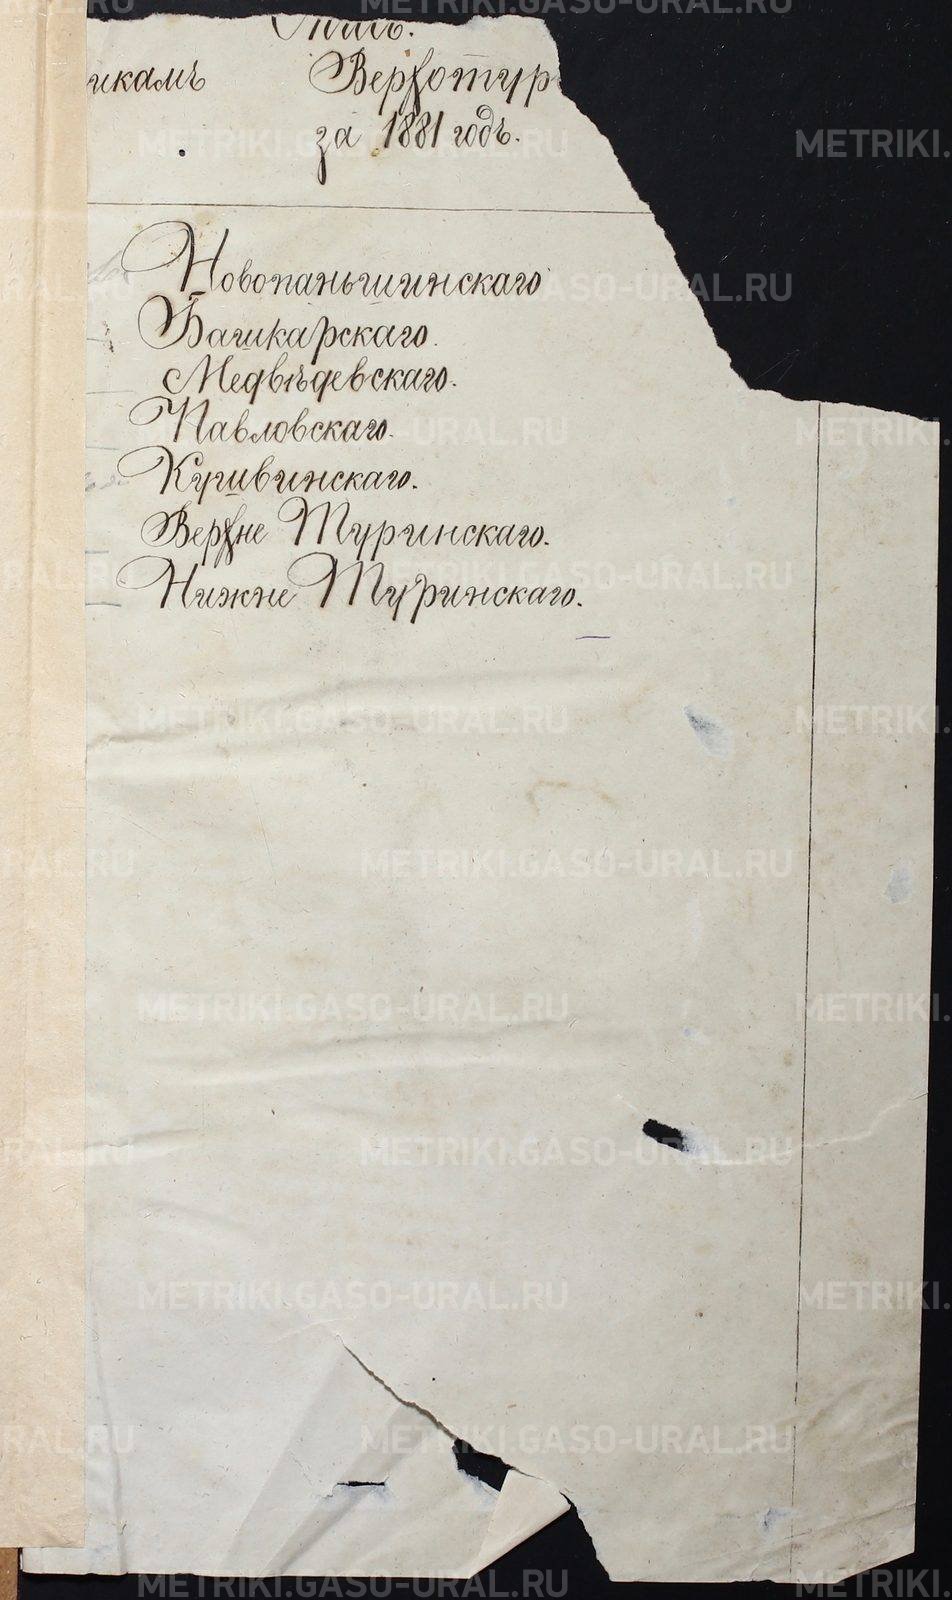 икамъ Верхотур
за 1881 годъ.
Новопаньшинскаго
Башкарскаго.
Медвѣдевскаго.
Павловскаго.
Кушвинскаго.
Верхне Туринскаго.
Нижне Туринскаго.
METRIKI.GASO-URAL.RU